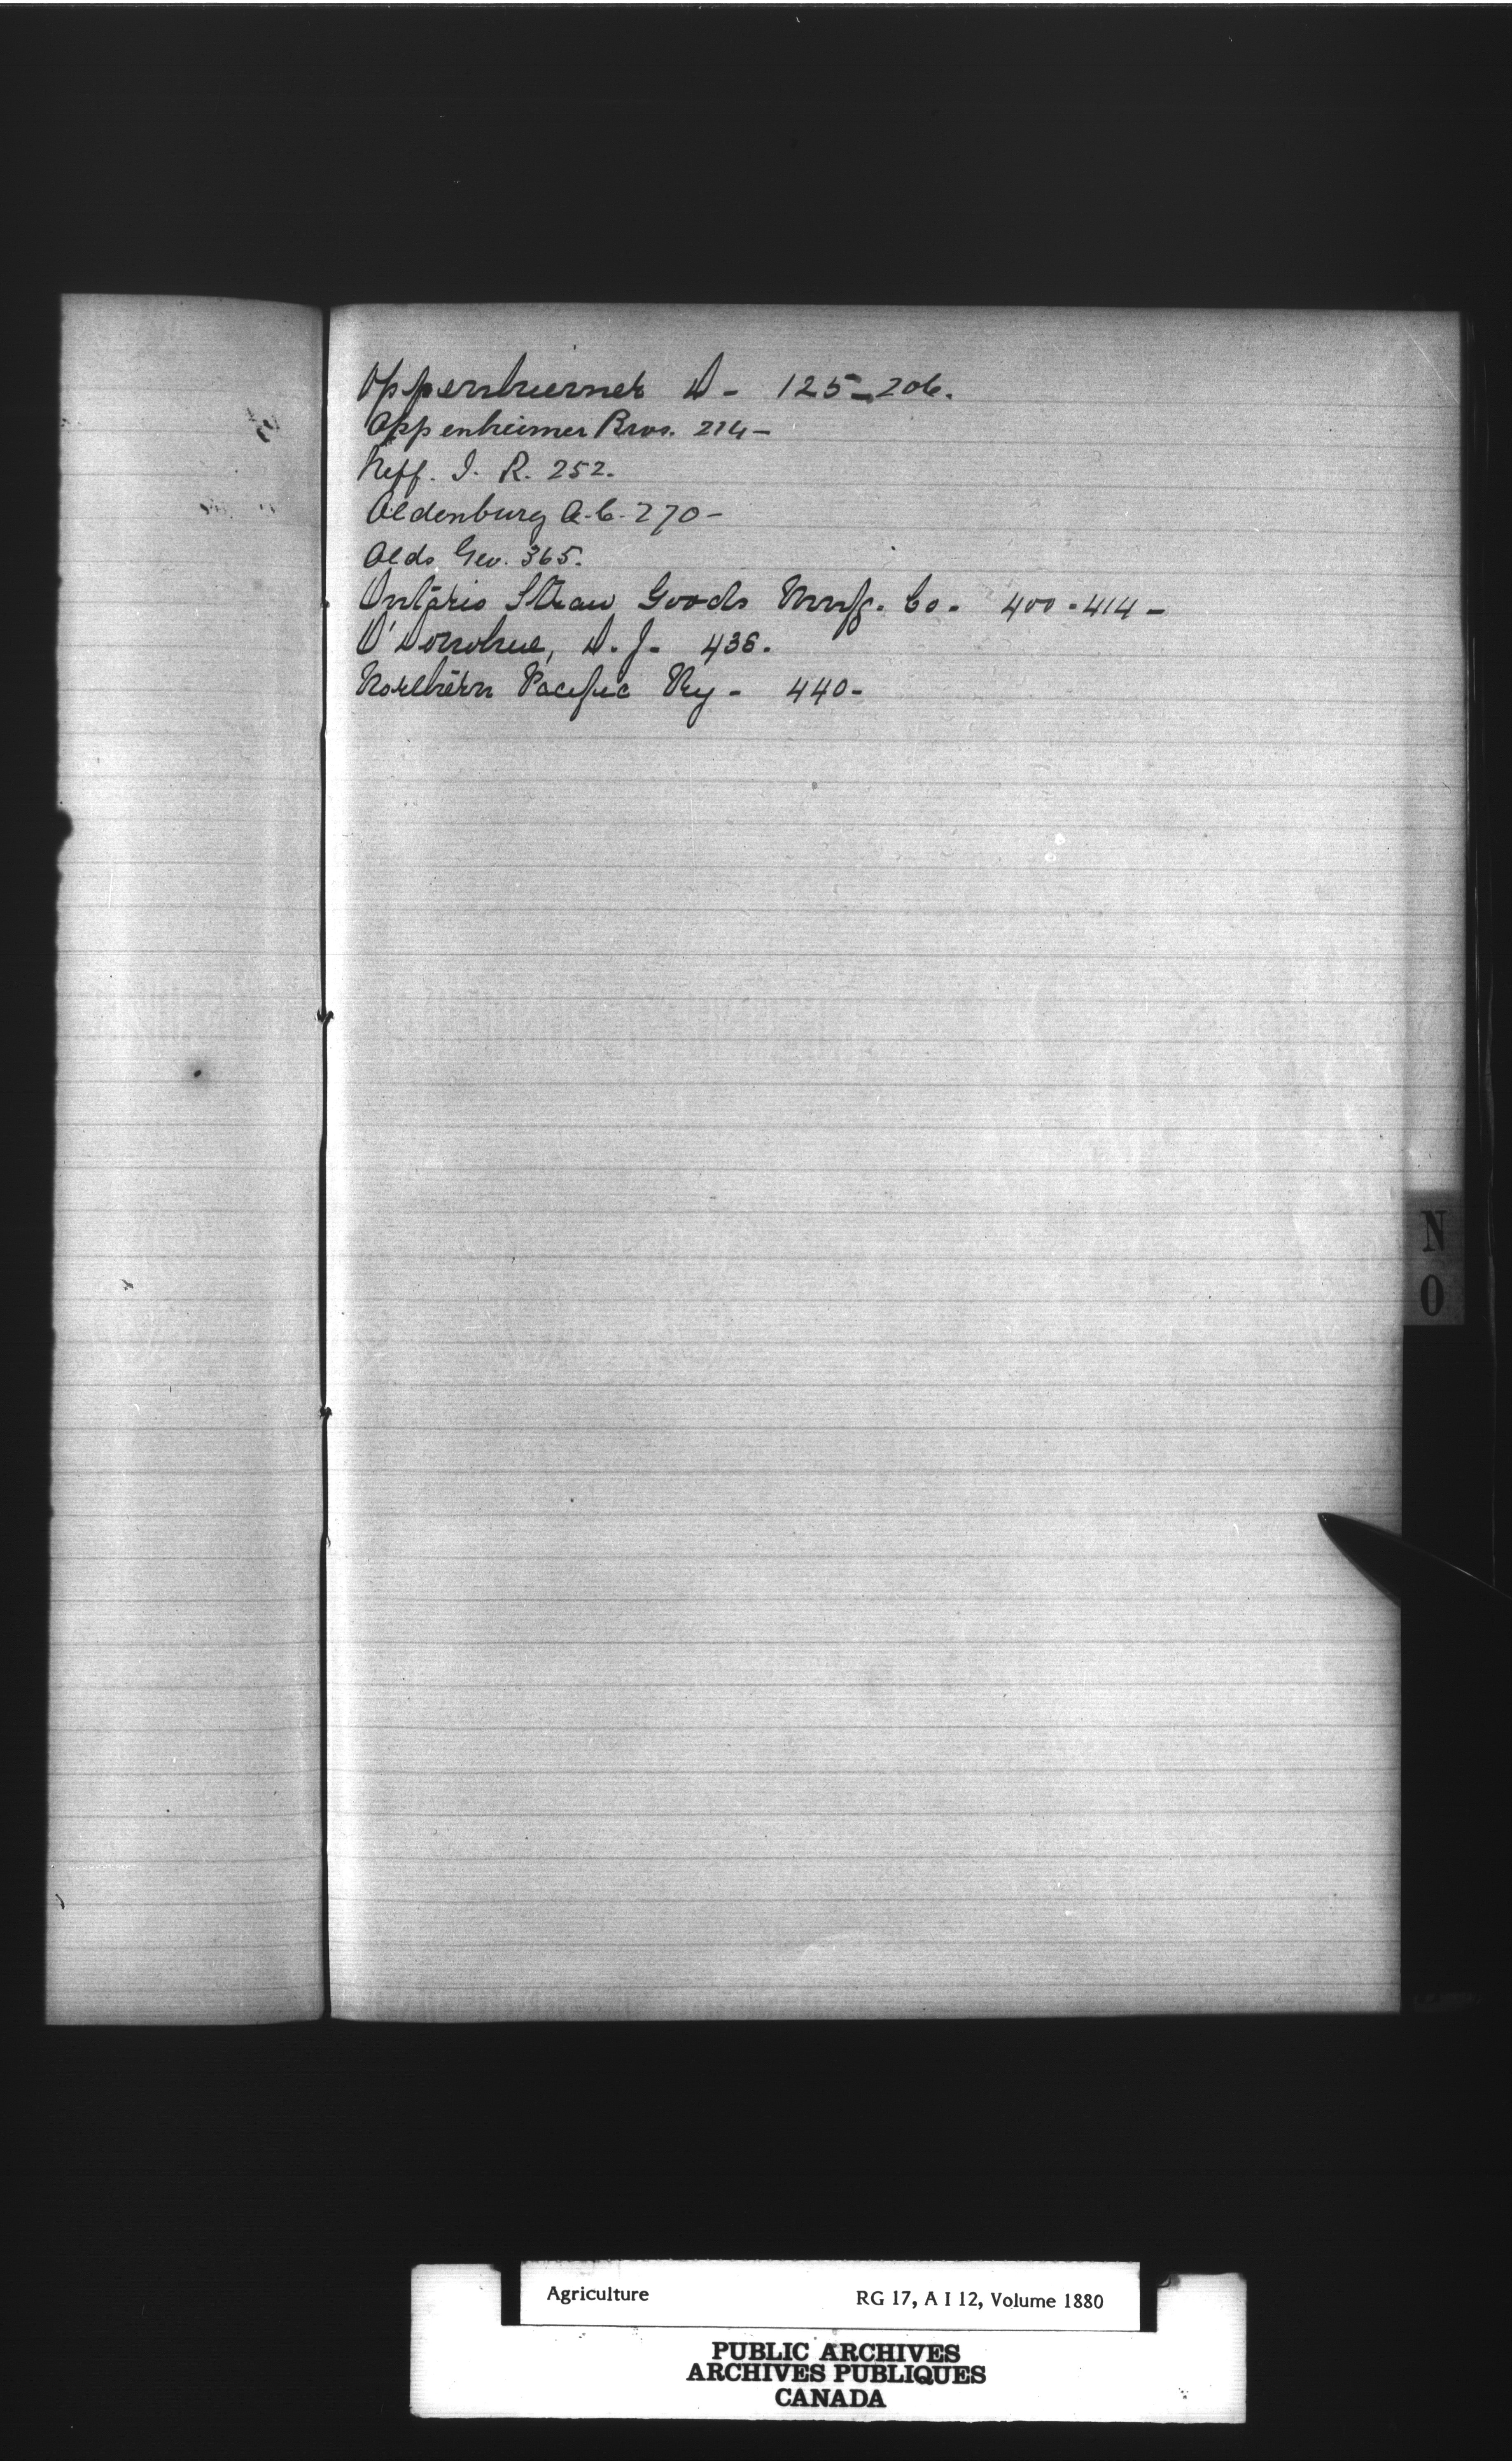 Oppenheimer D - 125 - 206.
Oppenheimer Bros. 214 -
Neff. I. R. 252.
Oldenburg A. C. 270 -
Olds Geo. 365.
Ontario Straw Goods Mnfg. Co. 400 - 414 -
O'Donohue, D. J. 436.
Northern Pacific Ry - 440 -
N
O
Agriculture RG 17, A I 12, Volume 1880
PUBLIC ARCHIVES
ARCHIVES PUBLIQUES
CANADA